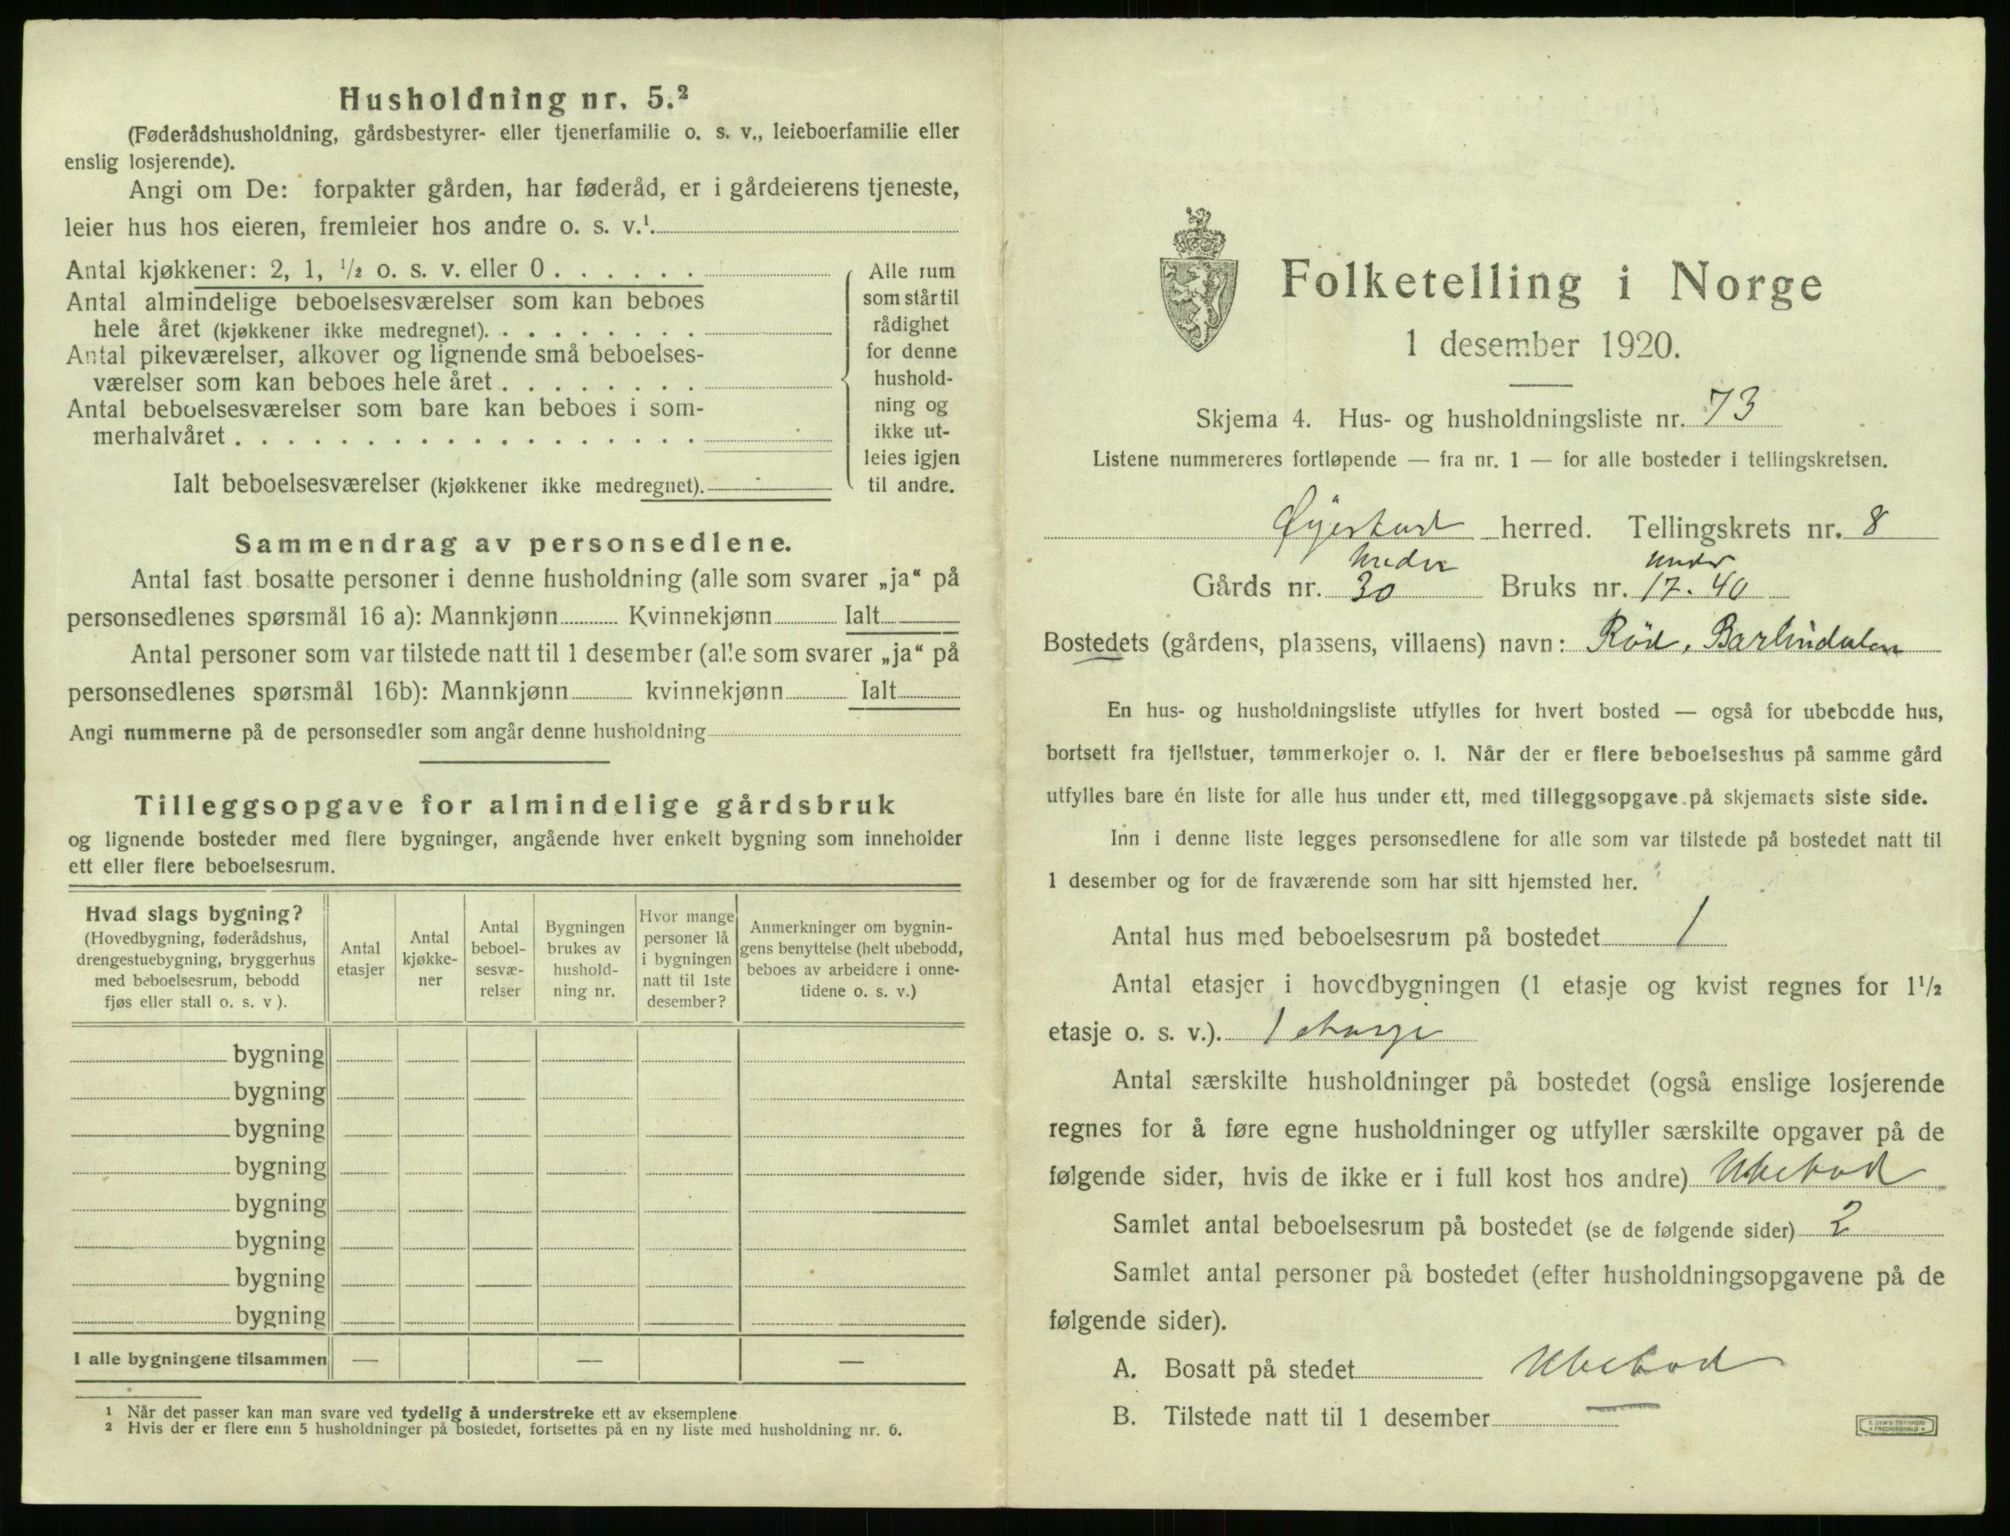 Husholdning nr. 5.²
(Føderådshusholdning, gårdsbestyrer- eller tjenerfamilie o. s. v., leieboerfamilie eller
enslig losjerende).
Angi om De: forpakter gården, har føderåd, er i gårdeierens tjeneste,
leier hus hos eieren, fremleier hos andre o. s. v.¹
Antal kjøkkener: 2, 1, ½ o. s. v. eller 0 . . . . . .
Antal almindelige beboelsesværelser som kan beboes
hele året (kjøkkener ikke medregnet). . . . . . . . .
Antal pikeværelser, alkover og lignende små beboelses-
værelser som kan beboes hele året . . . . . . . .
Antal beboelsesværelser som bare kan beboes i som-
merhalvåret . . . . . . . . . . . . . . . . . .
Ialt beboelsesværelser (kjøkkener ikke medregnet).
Alle rum
som står til
rådighet
for denne
hushold-
ning og
ikke ut-
leies igjen
til andre.
Sammendrag av personsedlene.
Antal fast bosatte personer i denne husholdning (alle som svarer „ja“ på
personsedlenes spørsmål 16 a): Mannkjønn Kvinnekjønn Ialt
Antal personer som var tilstede natt til 1 desember (alle som svarer „ja“ på
personsedlenes spørsmål 16b): Mannkjønn kvinnekjønn Ialt
Angi nummerne på de personsedler som angår denne husholdning
Tilleggsopgave for almindelige gårdsbruk
og lignende bosteder med flere bygninger, angående hver enkelt bygning som inneholder
ett eller flere beboelsesrum.
Hvad slags bygning?
(Hovedbygning, føderådshus,
drengestuebygning, bryggerhus
med beboelsesrum, bebodd
fjøs eller stall o. s. v ).
Antal
etasjer
Antal
kjøkke-
ner
Antal
beboel-
sesvæ-
relser
Bygningen
brukes av
hushold-
ning nr.
Hvor mange
personer lå
i bygningen
natt til 1ste
desember?
Anmerkninger om bygnin-
gens benyttelse (helt ubebodd,
beboes av arbeidere i onne-
tidene o. s. v.)
bygning
bygning
bygning
bygning
bygning
bygning
bygning
bygning
I alle bygningene tilsammen — — —
¹ Når det passer kan man svare ved tydelig å understreke ett av eksemplene
² Hvis der er flere enn 5 husholdninger på bostedet, fortsettes på en ny liste med husholdning nr. 6.
Folketelling i Norge
1 desember 1920.
Skjema 4. Hus- og husholdningsliste nr. 73
Listene nummereres fortløpende — fra nr. 1 — for alle bosteder i tellingskretsen.
Øyestad herred. Tellingskrets nr. 8
Under Under
Gårds nr. 30 Bruks nr. 17. 40
Bostedets (gårdens, plassens, villaens) navn: Röd, Barlindalen
En hus- og husholdningsliste utfylles for hvert bosted — også for ubebodde hus,
bortsett fra fjellstuer, tømmerkojer o. l. Når der er flere beboelseshus på samme gård
utfylles bare én liste for alle hus under ett, med tilleggsopgave på skjemaets siste side.
Inn i denne liste legges personsedlene for alle som var tilstede på bostedet natt til
1 desember og for de fraværende som har sitt hjemsted her.
Antal hus med beboelsesrum på bostedet 1
Antal etasjer i hovedbygningen (1 etasje og kvist regnes for 1½
etasje o. s. v.). 1 etasje
Antal særskilte husholdninger på bostedet (også enslige losjerende
regnes for å føre egne husholdninger og utfyller særskilte opgaver på de
følgende sider, hvis de ikke er i full kost hos andre) Ubebod
Samlet antal beboelsesrum på bostedet (se de følgende sider) 2
Samlet antal personer på bostedet (efter husholdningsopgavene på de
følgende sider).
A. Bosatt på stedet Ubebod
B. Tilstede natt til 1 desember —